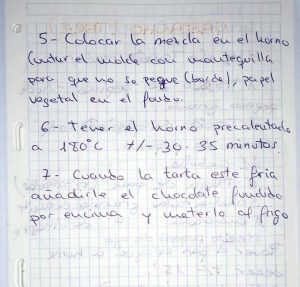 5- Colocar la mezcla en el horno
(untar el molde con mantequilla
para que no se pegue (borde), papel
vegetal en el fondo.
6- Tener el horno precalentado
a 180°C +/- 30-35 minutos
7- Cuando la tarta este fria
añadirle el chocolate fundido
por encima y meterlo al frigo